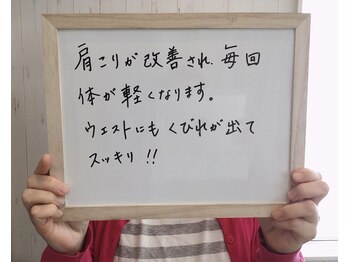 肩こりが改善され、毎回
体が軽くなります。
ウェストにもくびれが出て
スッキリ!!